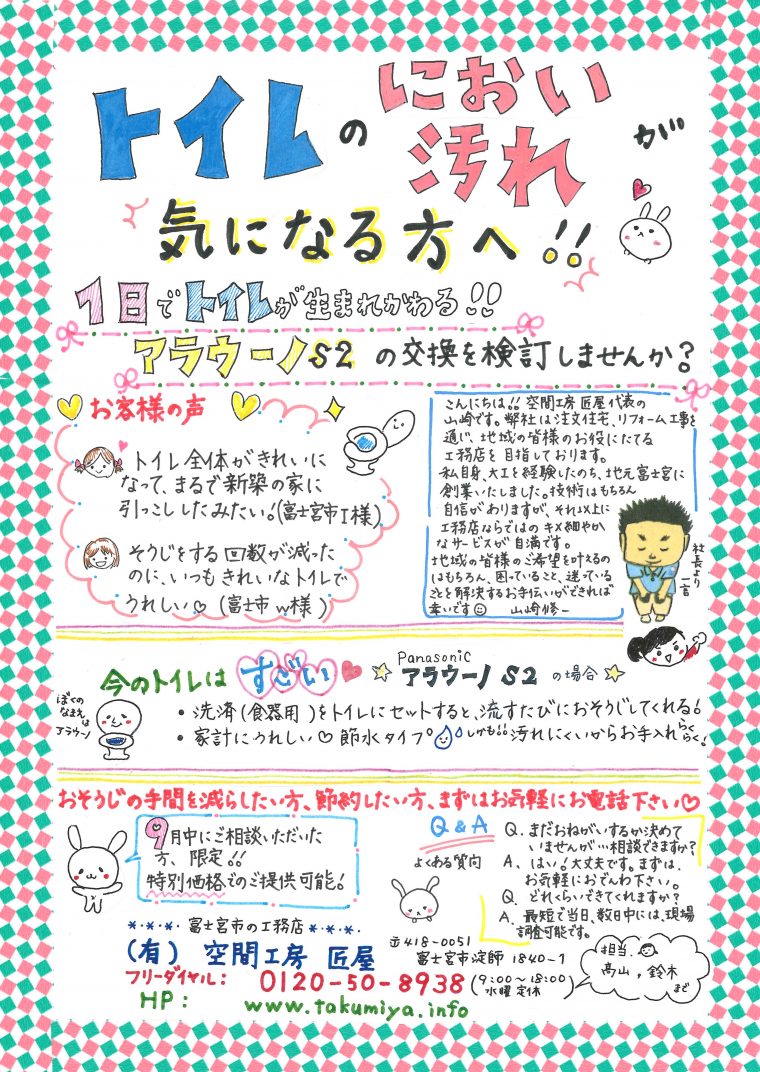 トイレの
におい
汚れ が
気になる方へ!!
1日でトイレが生まれかわる!!
アラウーノS2 の交換を検訂しませんか?
お客様の声
トイレ全体がきれいに
なって、まるで新築の家に
引っこししたみたい。(富士宮市I様)
そうじをする回数が減った
のに、いつもきれいなトイレで
うれしい♡ (富士市W様)
こんにちは!! 空間工房 匠屋 代表の
山崎です。弊社は注文住宅、リフォーム工事を
通じ、地域の皆様のお役にたてる
工務店を目指しております。
私自身、大工を経験したのち、地元富士宮に
創業いたしました。技術はもちろん
自信がありますが、それ以上に
工務店ならではのキメ細やか
なサービスが自満です。
地域の皆様のご希望を叶えるの
はもちろん、困っていること、迷っている
ことを解決するお手伝いができれば
幸いです☺ 山崎修一
社長より
一言
今のトイレは すごい
Panasonic
アラウーノ S2 の場合
ぼくの
なまえ
は
アラウーノ
・洗済(食器用)をトイレにセットすると、流すたびにおそうじしてくれる!
・家計にうれしい♡節水タイプ しかも!!汚れにくいからお手入れらくらく!
おそうじの手間を減らしたい方、節約したい方、まずはお気軽にお電話下さい♡
9月中にご相談いただいた
方、限定!!
特別価格でのご提供可能!
Q & A
よくある質向
Q. まだおねがいするか決めて
いませんが…相談できますか?
A. はい!大丈夫です。まずは、
お気軽におでんわ下さい。
Q. どれくらいできてくれますか?
A. 最短で当日、数日中には、現場
調査可能です。
*・*・*・富士宮市の工務店*・*・*・
(有) 空間工房 匠屋
〒418-0051
富士宮市淀師 1840-1
フリーダイヤル: 0120-50-8938
(9:00〜18:00)
水曜定休
担当
高山,鈴木
まで
HP: www.takumiya.info